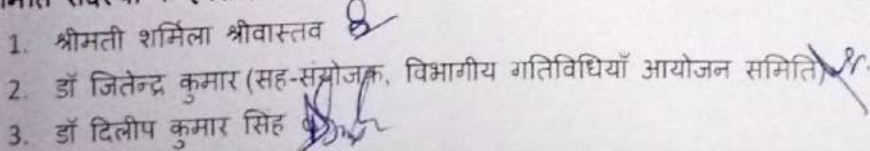 1. श्रीमती शर्मिला श्रीवास्तव
2. डॉ जितेन्द्र कुमार (सह-संयोजक, विभागीय गतिविधियाँ आयोजन समिति)
3. डॉ दिलीप कुमार सिंह